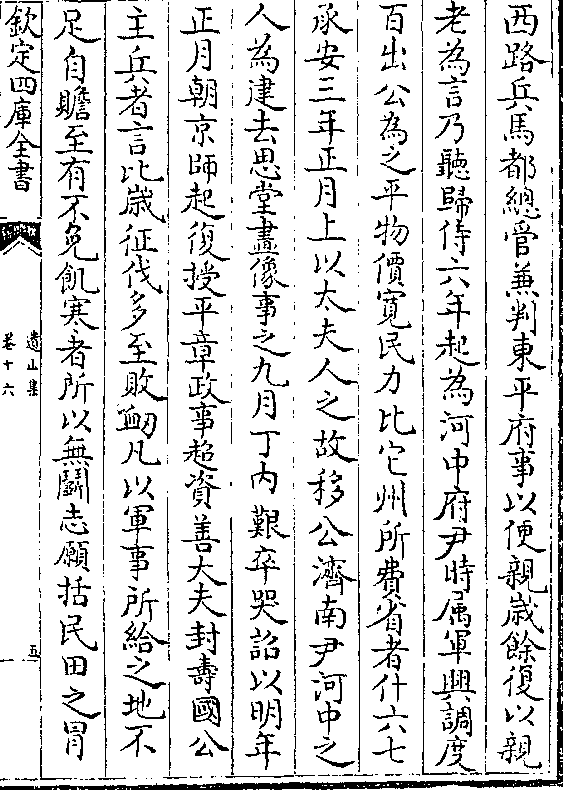 西路兵馬都總管兼判東平府事以便親歳餘復以親
老為言乃聽歸侍六年起為河中府尹時属軍興調度
百出公為之平物價寛民力比它州所費省者什六七
承安三年正月上以太夫人之故移公濟南尹河中之
人為建去思堂畫像事之九月丁内艱卒哭詔以明年
正月朝京師起復授平章政事超資善大夫封壽國公
主兵者言比歳征伐多至敗衂凡以軍事所給之地不
足自贍至有不免飢寒者所以無鬭志願括民田之冒
欽定四庫全書
遺山集
卷十六
五